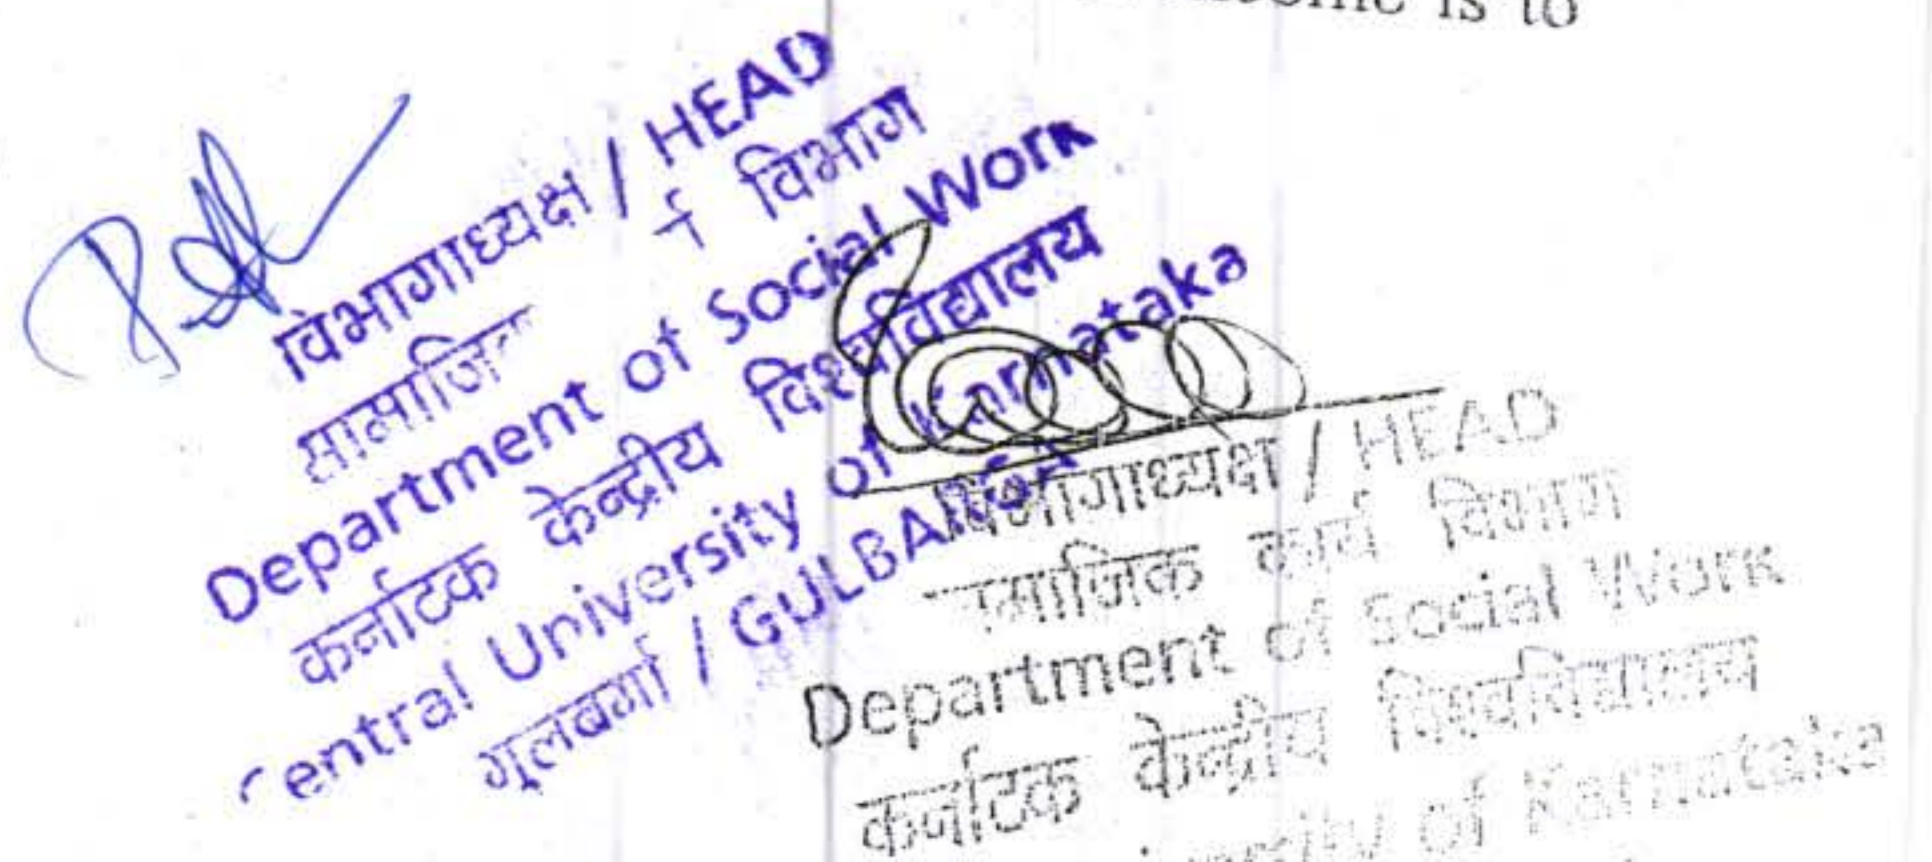 is to
विभागाध्यक्ष / HEAD
विभाग
Department of Social Work
कर्नाटक केन्द्रीय विश्वविद्यालय
entral University of Karnataka
गुलबर्गा / GULBARGA
विभागाध्यक्ष / HEAD
माजिक कार्य विभाग
Department of Social Work
कर्नाटक केन्द्रीय विश्वविद्यालय
of Karnataka